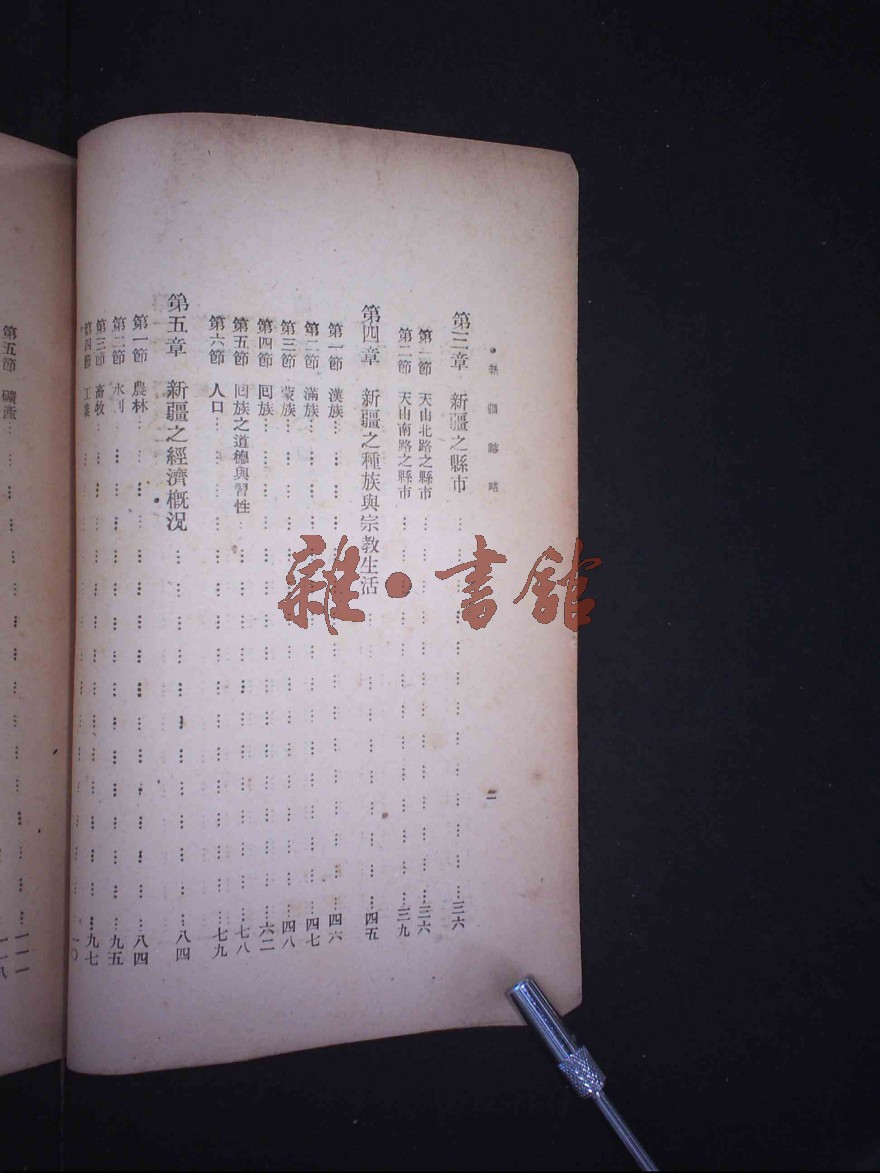 新疆誌略
二
第三章　新疆之縣市……三六
第一節　天山北路之縣市……三六
第二節　天山南路之縣市……三九
第四章　新疆之種族與宗教生活……四五
第一節　漢族……四六
第二節　滿族……四七
第三節　蒙族……四八
第四節　回族……六二
第五節　回族之道德與習性……七八
第六節　人口……七九
第五章　新疆之經濟概況……八四
第一節　農林……八四
第二節　水利……九五
第三節　畜牧……九七
第四節　工業……
第五節　礦產……
雜·書館